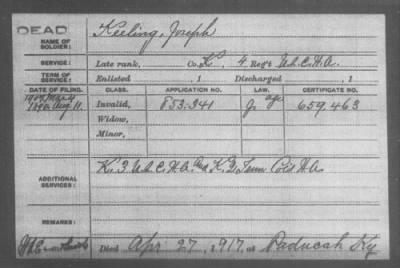 DEAD
NAME OF SOLDIER: Keeling, Joseph
SERVICE: Late rank, Co. K, 4 Reg't U.S.C.H.A.
TERM OF SERVICE: Enlisted , 1 Discharged , 1
DATE OF FILING. CLASS. APPLICATION NO. LAW. CERTIFICATE NO.
1890 Aug 11. Invalid, 853.341 age 659,463
Widow,
Minor,
ADDITIONAL SERVICES: K. 3 U.S.C.H.A. K. Tenn Cold H.A.
REMARKS:
Died Apr 27, 1917, at Paducah Ky